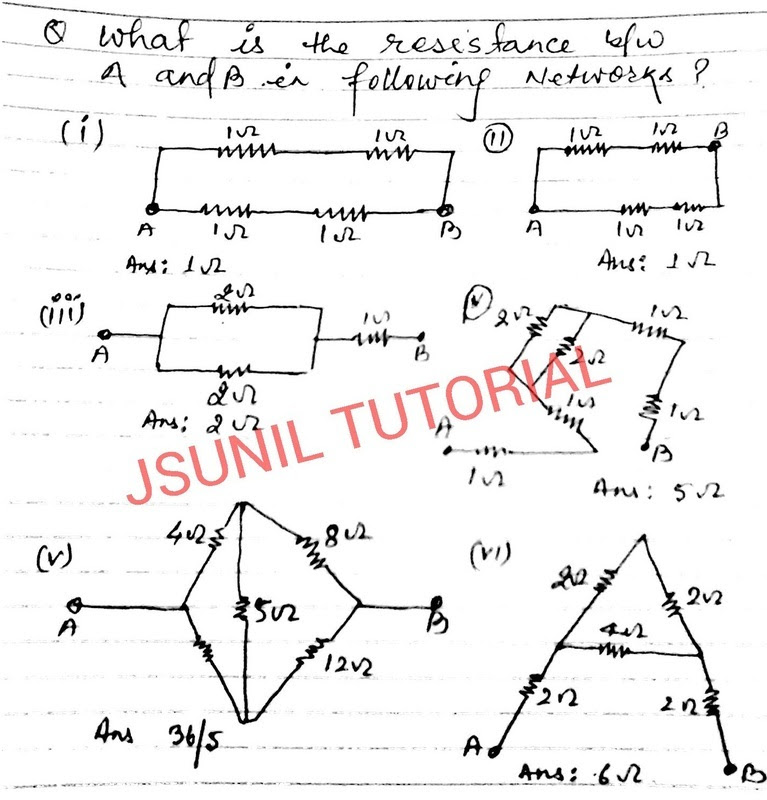 Q What is the resistance b/w
A and B in following Networks?
(i) 1Ω 1Ω
A 1Ω 1Ω B
Ans: 1Ω
(ii) 1Ω 1Ω B
A 1Ω 1Ω
Ans: 1Ω
(iii) 2Ω 1Ω
A B
2Ω
Ans: 2Ω
v 2Ω 1Ω
2Ω
1Ω 1Ω
A B
1Ω
Ans: 5Ω
JSUNIL TUTORIAL
(v) 4Ω 8Ω
A 5Ω B
12Ω
Ans 36/5
(vi) 2Ω 2Ω
4Ω
2Ω 2Ω
A B
Ans: 6Ω